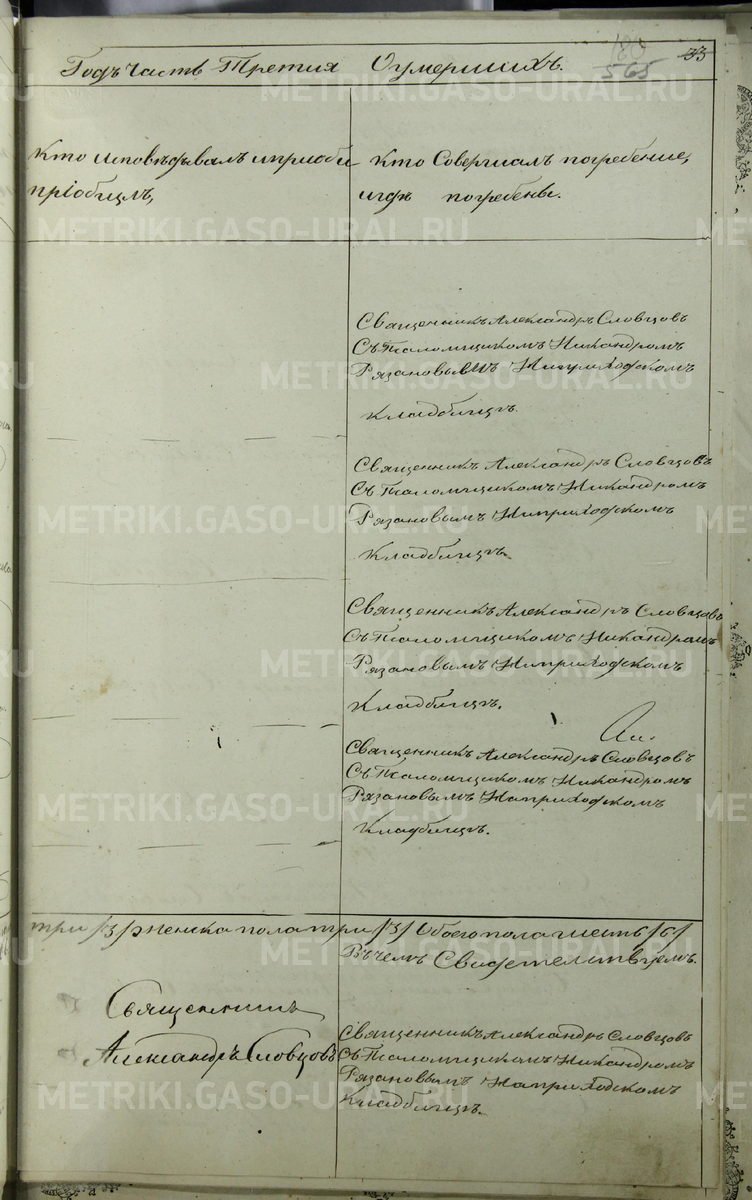 Годъ Часть Третия Оумершихъ.
180
565
33
Кто исповѣдывалъ и приоби
приобщилъ,
Кто Совершалъ погребение,
и гдѣ погребены.
Священникъ Александръ Словцовъ
Съ Псаломщикомъ Никандромъ
Рязановымъ На приходскомъ
Кладбищѣ.
Священникъ Александръ Словцовъ
Съ Псаломщикомъ Никандромъ
Рязановымъ На приходскомъ
Кладбищѣ.
Священникъ Александръ Словцовъ
Съ Псаломщикомъ Никандромъ
Рязановымъ На приходскомъ
Кладбищѣ.
Священникъ Александръ Словцовъ
Съ Псаломщикомъ Никандромъ
Рязановымъ На приходскомъ
Кладбищѣ.
три /3/ женска пола три /3/ Обоего пола шесть /6/
Въ чемъ Свидетельствуемъ.
Священникъ
Александръ Словцовъ
Священникъ Александръ Словцовъ
Съ Псаломщикомъ Никандромъ
Рязановымъ На приходскомъ
Кладбищѣ.
METRIKI.GASO-URAL.RU